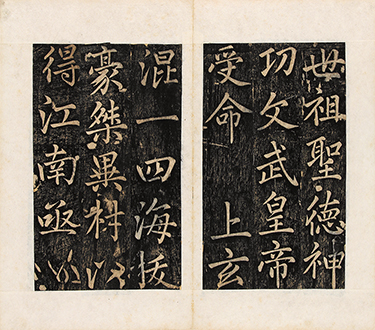 世祖聖德神
功文武皇帝
受命　上玄
混一四海拔
豪桀異材
得江南亟